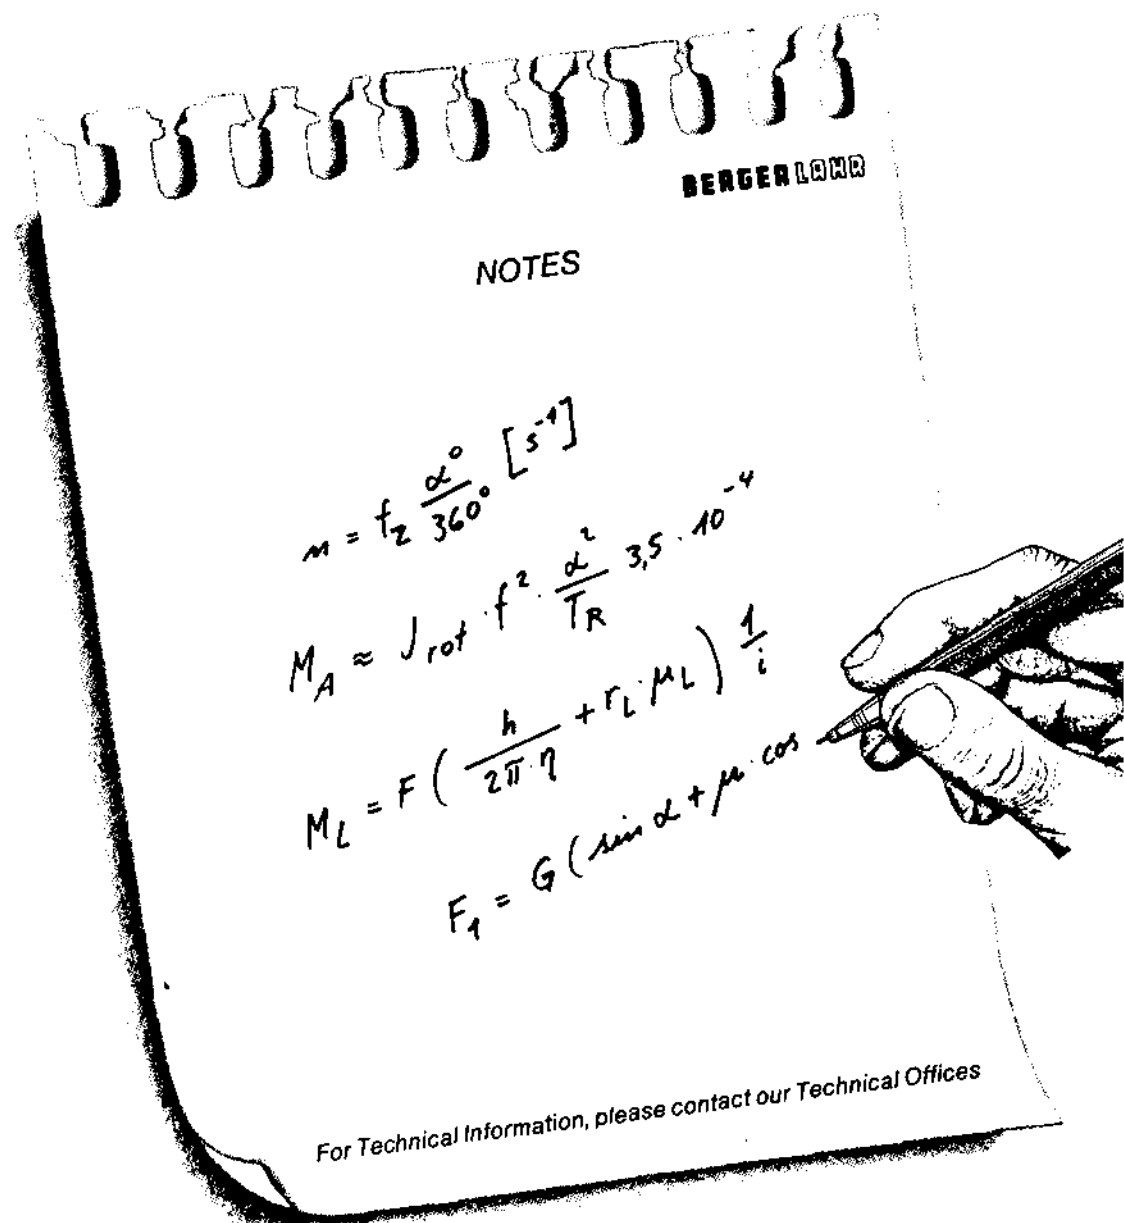 BERGER LAHR
NOTES
n = f_z α°/360° [s⁻¹]
M_A ≈ J_rot · f² · α²/T_R 3,5 · 10⁻⁴
M_L = F ( h/(2π · η) + r_L · μ_L ) 1/i
F_1 = G ( sin α + μ · cos
For Technical Information, please contact our Technical Offices